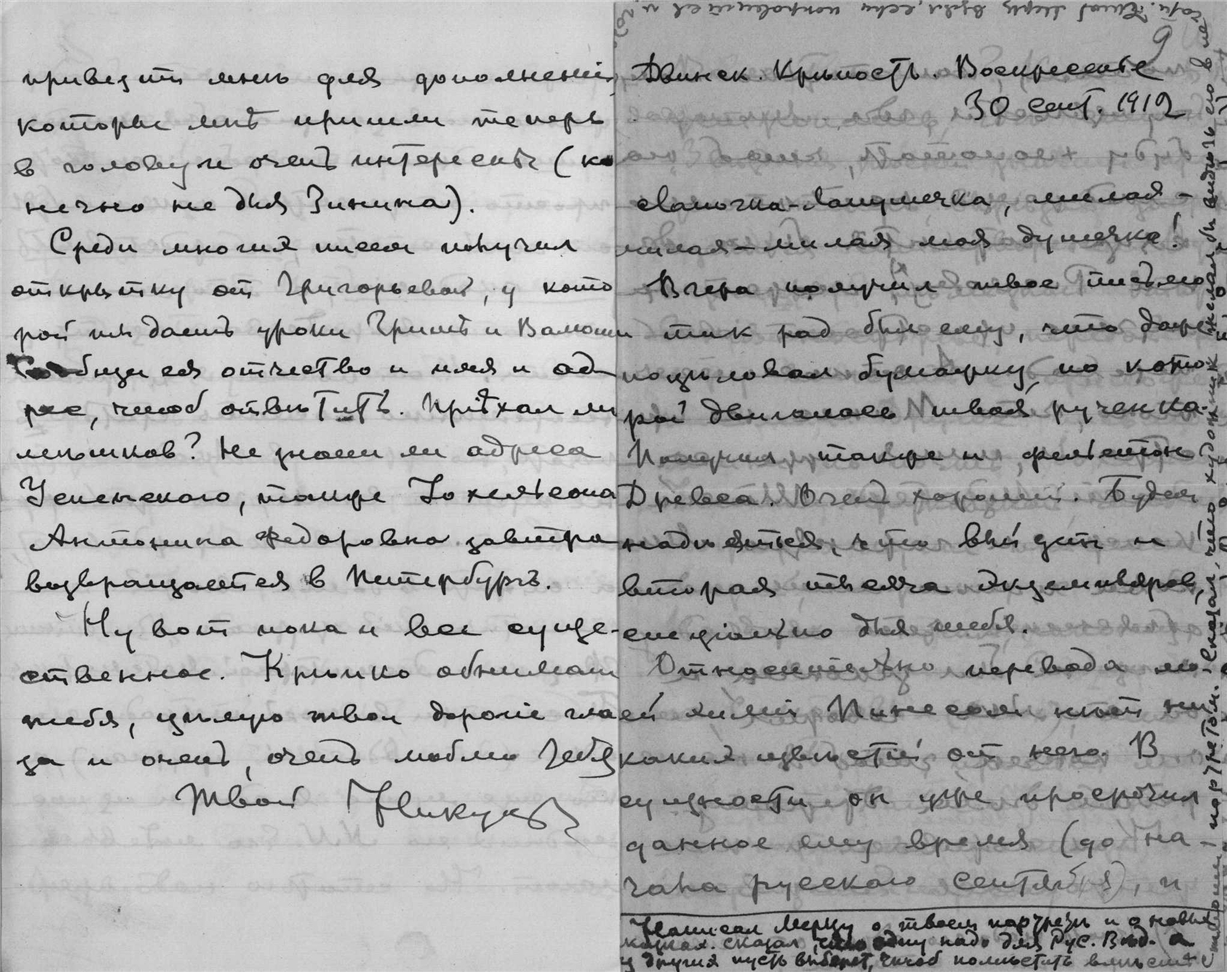 привезти мнѣ для дополненій,
которые мнѣ пришли теперь
в голову и очень интересны (ко
нечно не для Зинина).
Среди многих писем получил
открытку от Григорьевой, у кото
рой ты даешь уроки Гришѣ и Валюши
Сообщи ея отчество и имя и ад
рес, чтоб отвѣтить. Пріѣхал ли
Мѣшков? Не знаеш ли адреса
Успенскаго, также Іохельсона
Антонина Федоровна завтра
возвращается в Петербургъ.
Ну вот пока и все суще-
ственное. Крѣпко обнимаю
тебя, цѣлую твои дорогіе гла
за и очень, очень люблю тебя
Твой
9
Двинск. Крѣпость. Воскресенье
30 сент. 1912
милая-
милая-милая моя душечка!
Вчера получил твое письмо
и так рад был ему, что даже
поцѣловал бумажку, по кото
рой двигалась твоя рученка.
Получил также и фельетон
Древса. Очень хорошій. Будем
надѣяться, что выйдет и
вторая тысяча экземпляров,
спеціально для тебя.
Относительно перевода мо
ей химіи нѣт ни
каких извѣстій от него. В
сущности он уже просрочил
данное ему время (до на
чала русскаго сентября), и
Написал Мерцу о твоем портретѣ и о новых
сказал, что одну надо для Рус. Вѣд. а
другія пусть выберет, чтоб помѣстить вмѣстѣ с